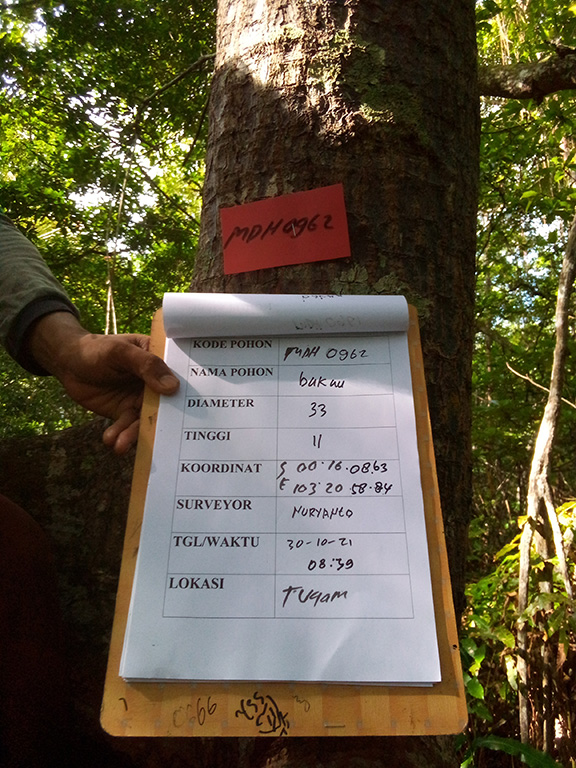 MDH 0962
KODE POHON MDH 0962
NAMA POHON bakau
DIAMETER 33
TINGGI 11
KOORDINAT S 00.16.08.63
E 103.20.58.84
SURVEYOR NURYANTO
TGL/WAKTU 30-10-21
08:39
LOKASI TUgam